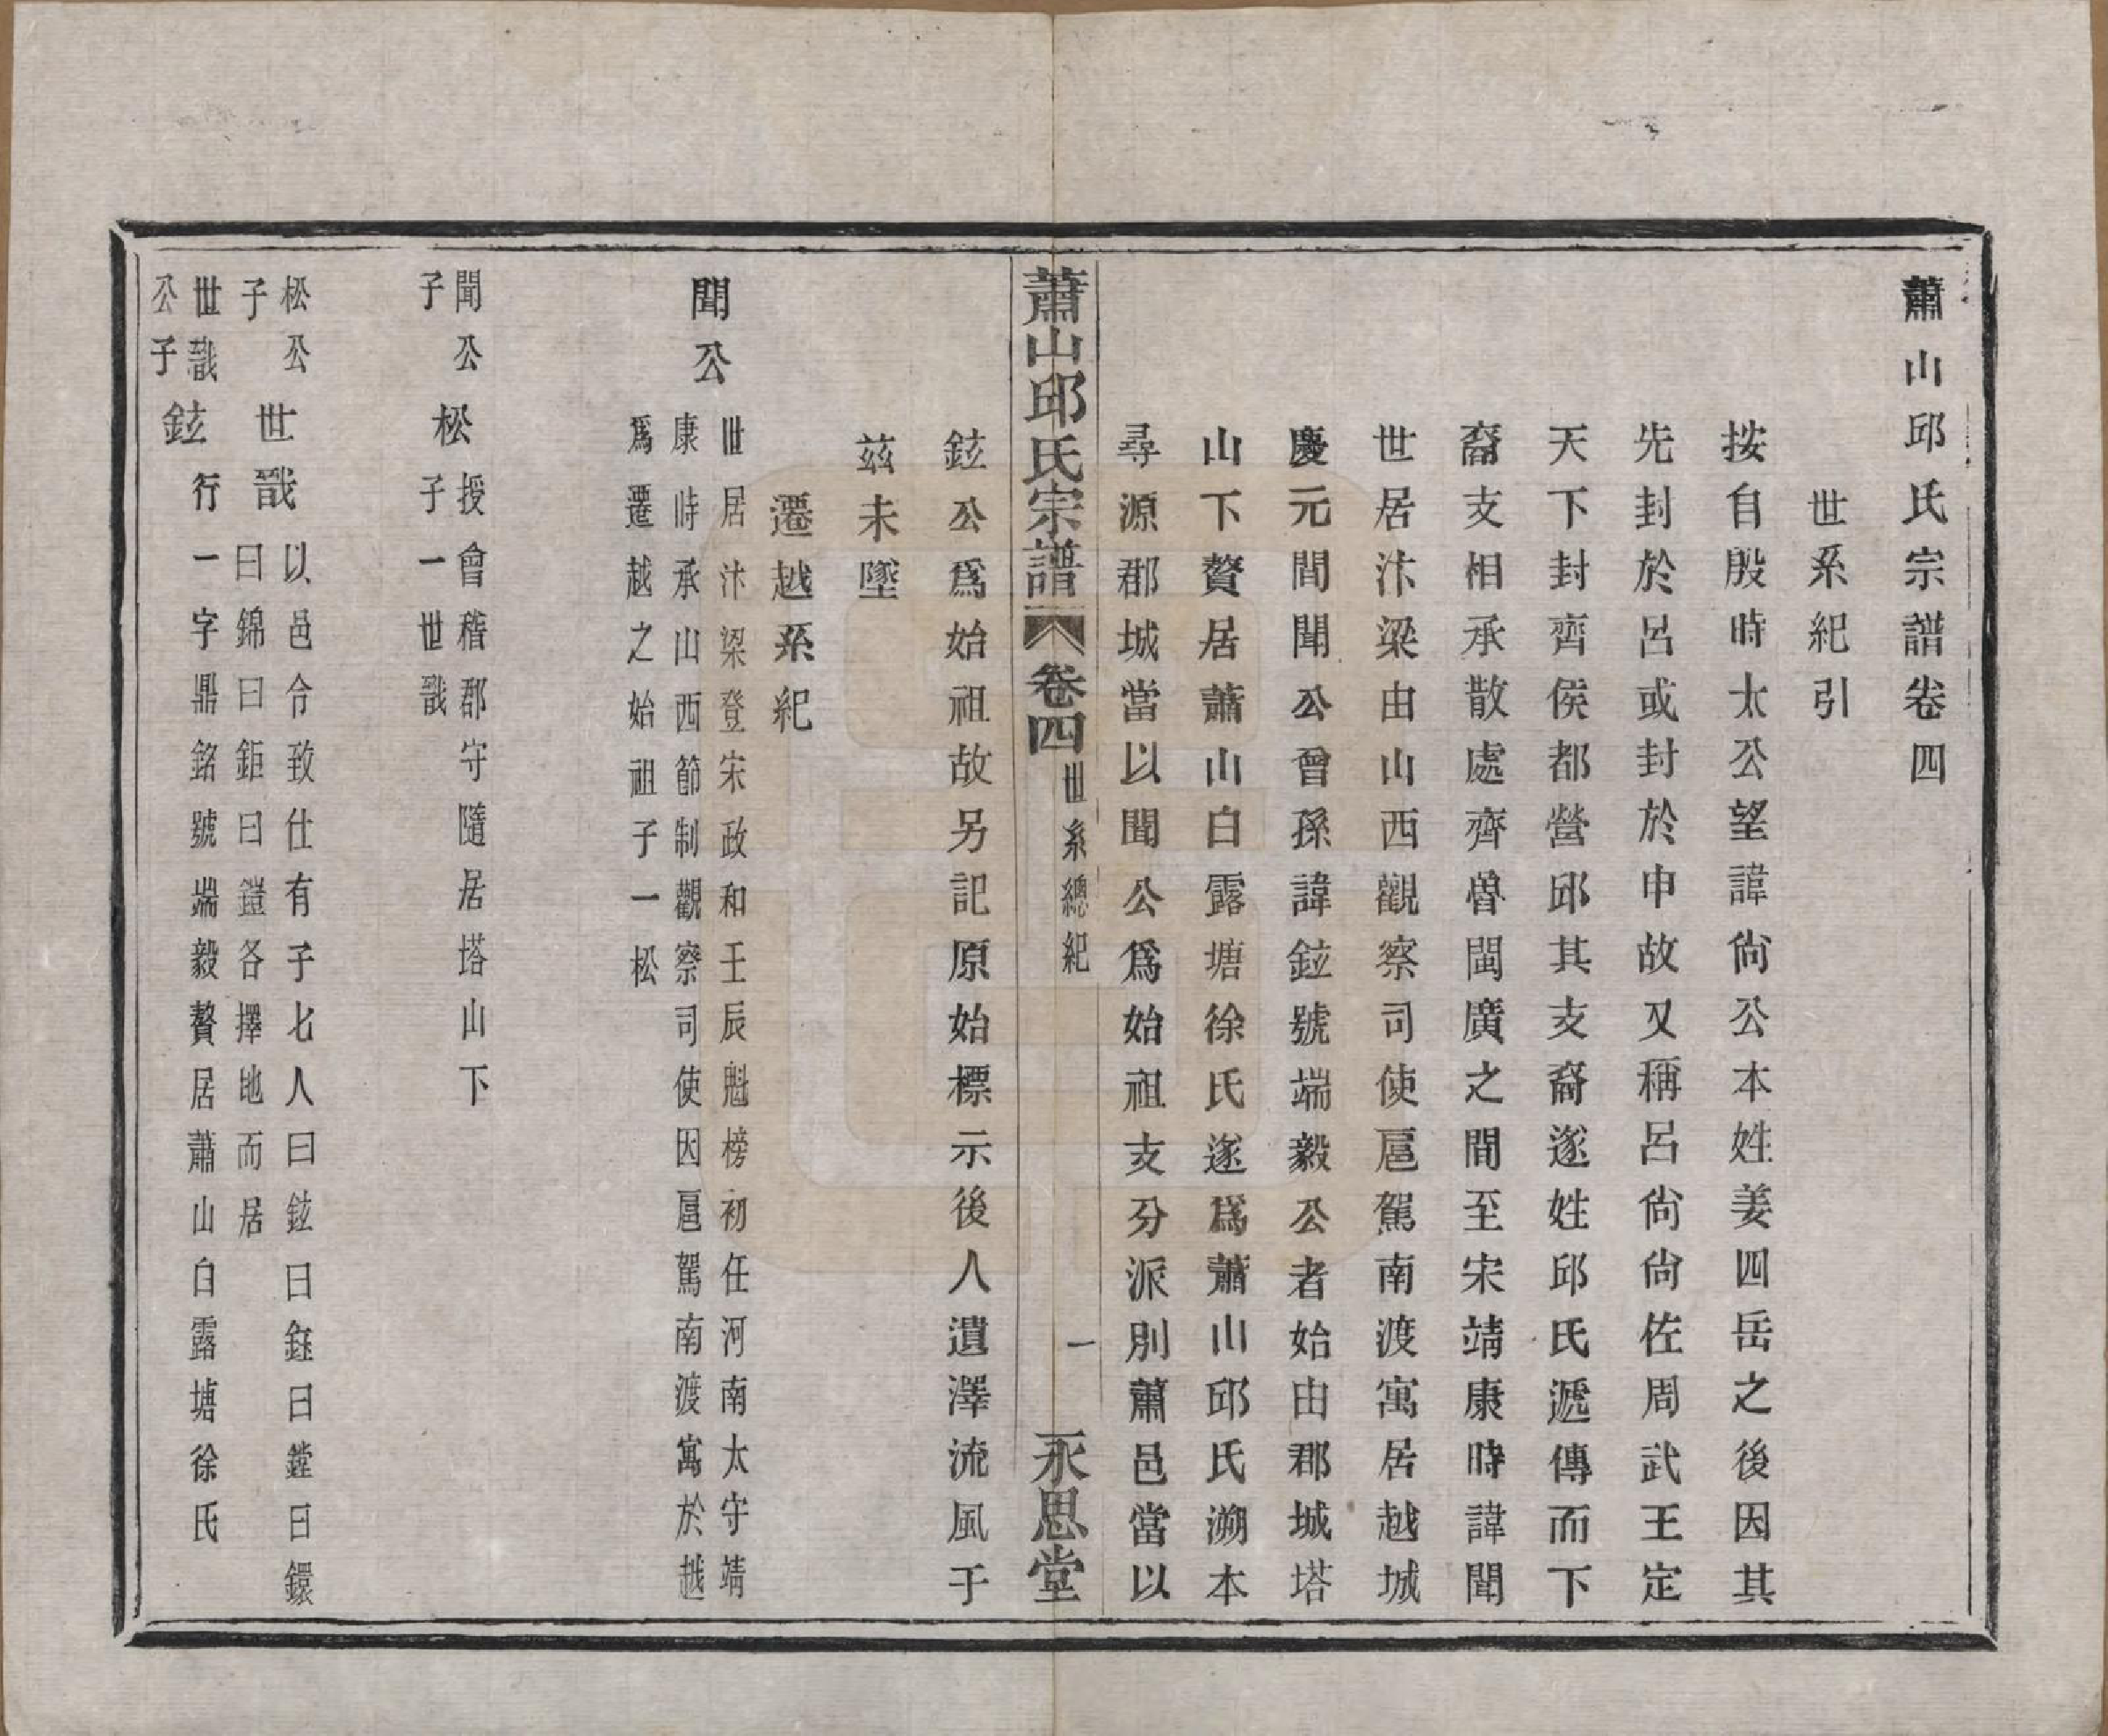 蕭山邱氏宗譜卷四
世系紀引
按自殷時太公望諱尙公本姓姜四岳之後因其
先封於呂或封於申故又稱呂尙尙佐周武王定
天下封齊侯都營邱其支裔遂姓邱氏遞傳而下
裔支相承散處齊魯閩廣之間至宋靖康時諱聞
世居汴梁由山西觀察司使扈駕南渡寓居越城
慶元間聞公曾孫諱鉉號端毅公者始由郡城塔
山下贅居蕭山白露塘徐氏遂爲蕭山邱氏溯本
尋源郡城當以聞公爲始祖支分派別蕭邑當以
蕭山邱氏宗譜 卷四 世系總紀 一 永思堂
鉉公爲始祖故另記原始標示後人遺澤流風于
茲未墜
遷越系紀
聞公
世居汴梁登宋政和壬辰魁榜初任河南太守靖
康時承山西節制觀察司使因扈駕南渡寓於越
爲遷越之始祖子一松
聞公子
松
授會稽郡守隨居塔山下
子一世戩
松公子
世戩
以邑令致仕有子七人曰鉉曰鈺曰鏜曰鐶
曰錦曰鉅曰鎧各擇地而居
世戩公子
鉉
行一字鼎銘號端毅贅居蕭山白露塘徐氏